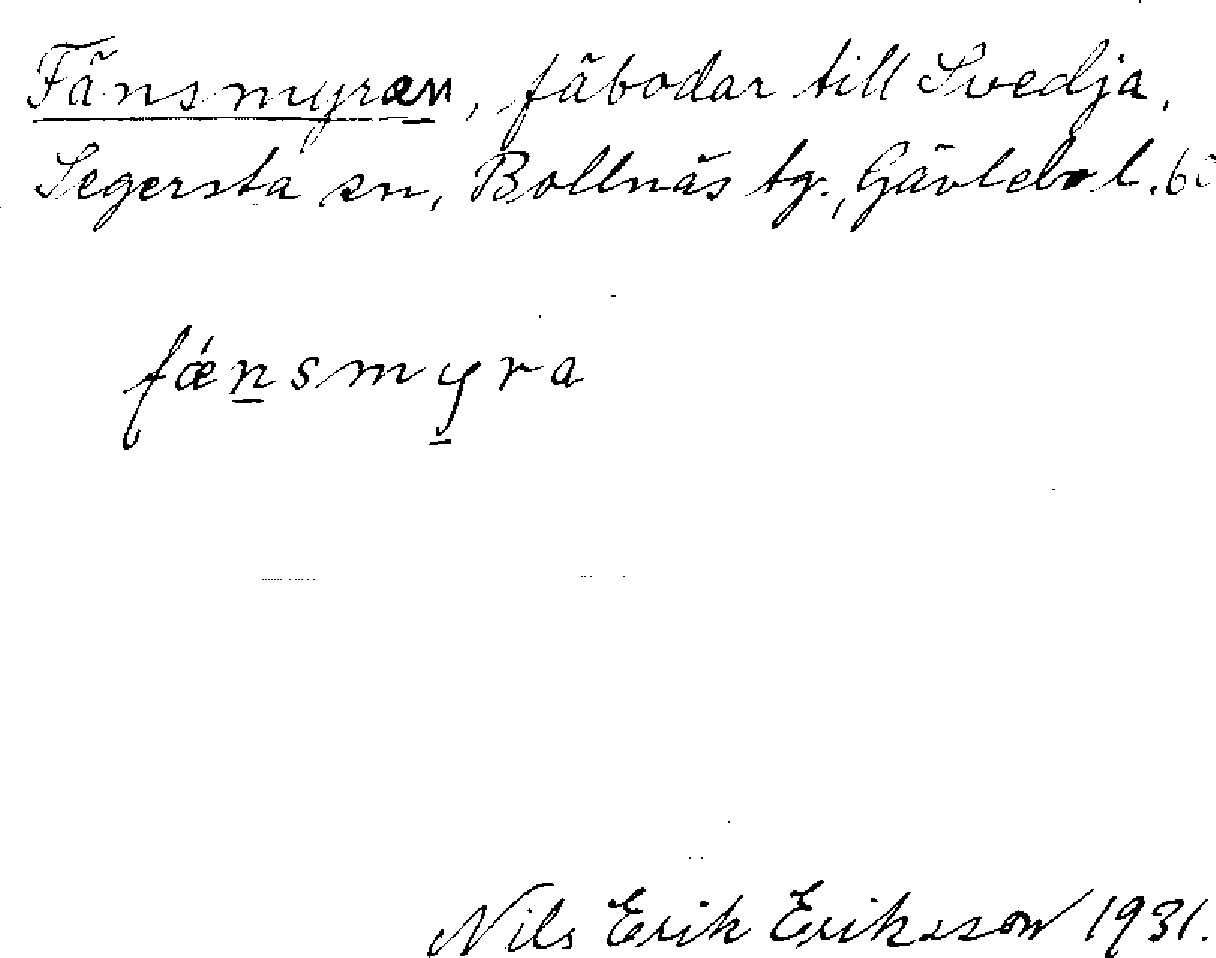 Fänsmyran, fäbodar till Svedja,
Segersta sn, Bollnäs tg., Gävlebr l.
fǽn̲smy̲ra
Nils Erik Eriksson 1931.